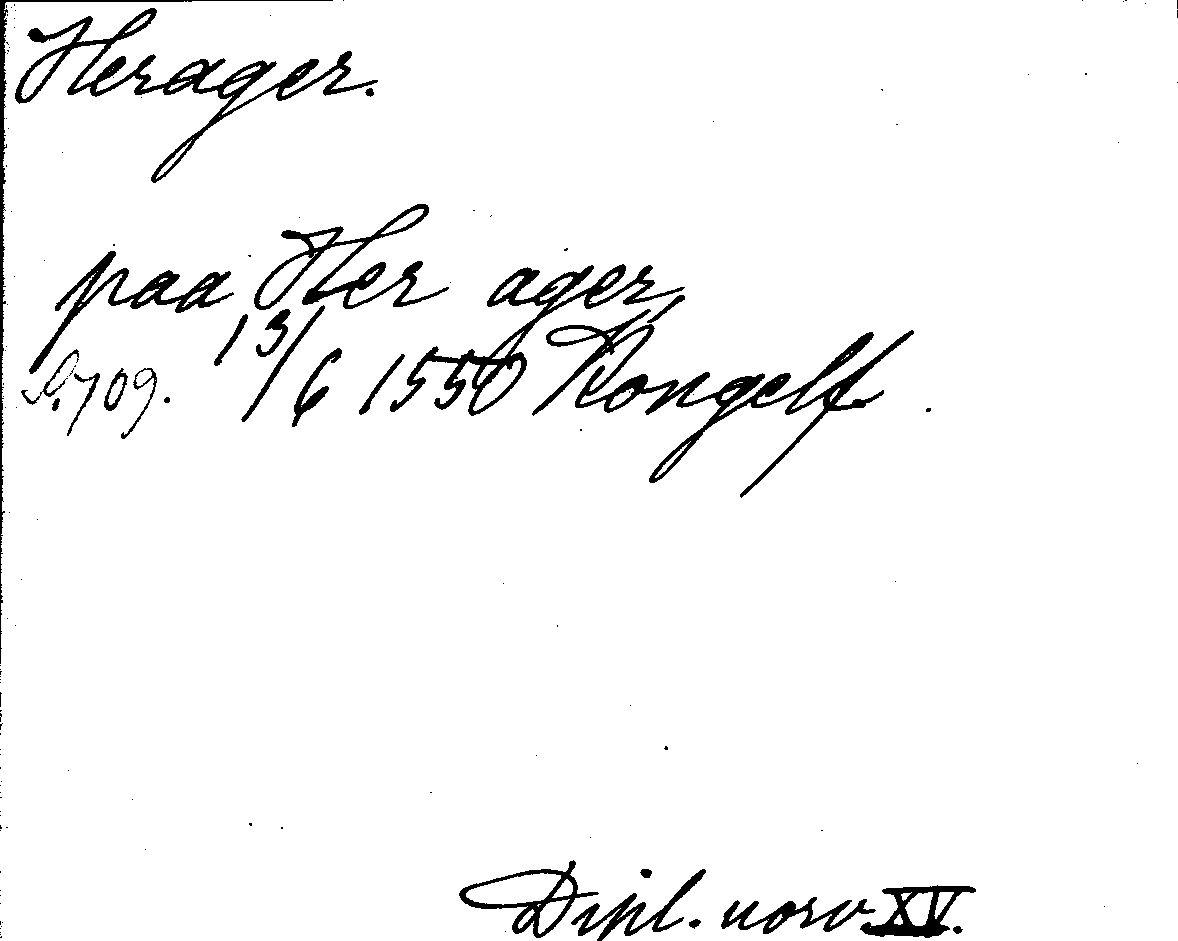 Herager.
paa Her ager,
S. 709. 13/6 1550 Kongelf.
Dipl. norv. XV.